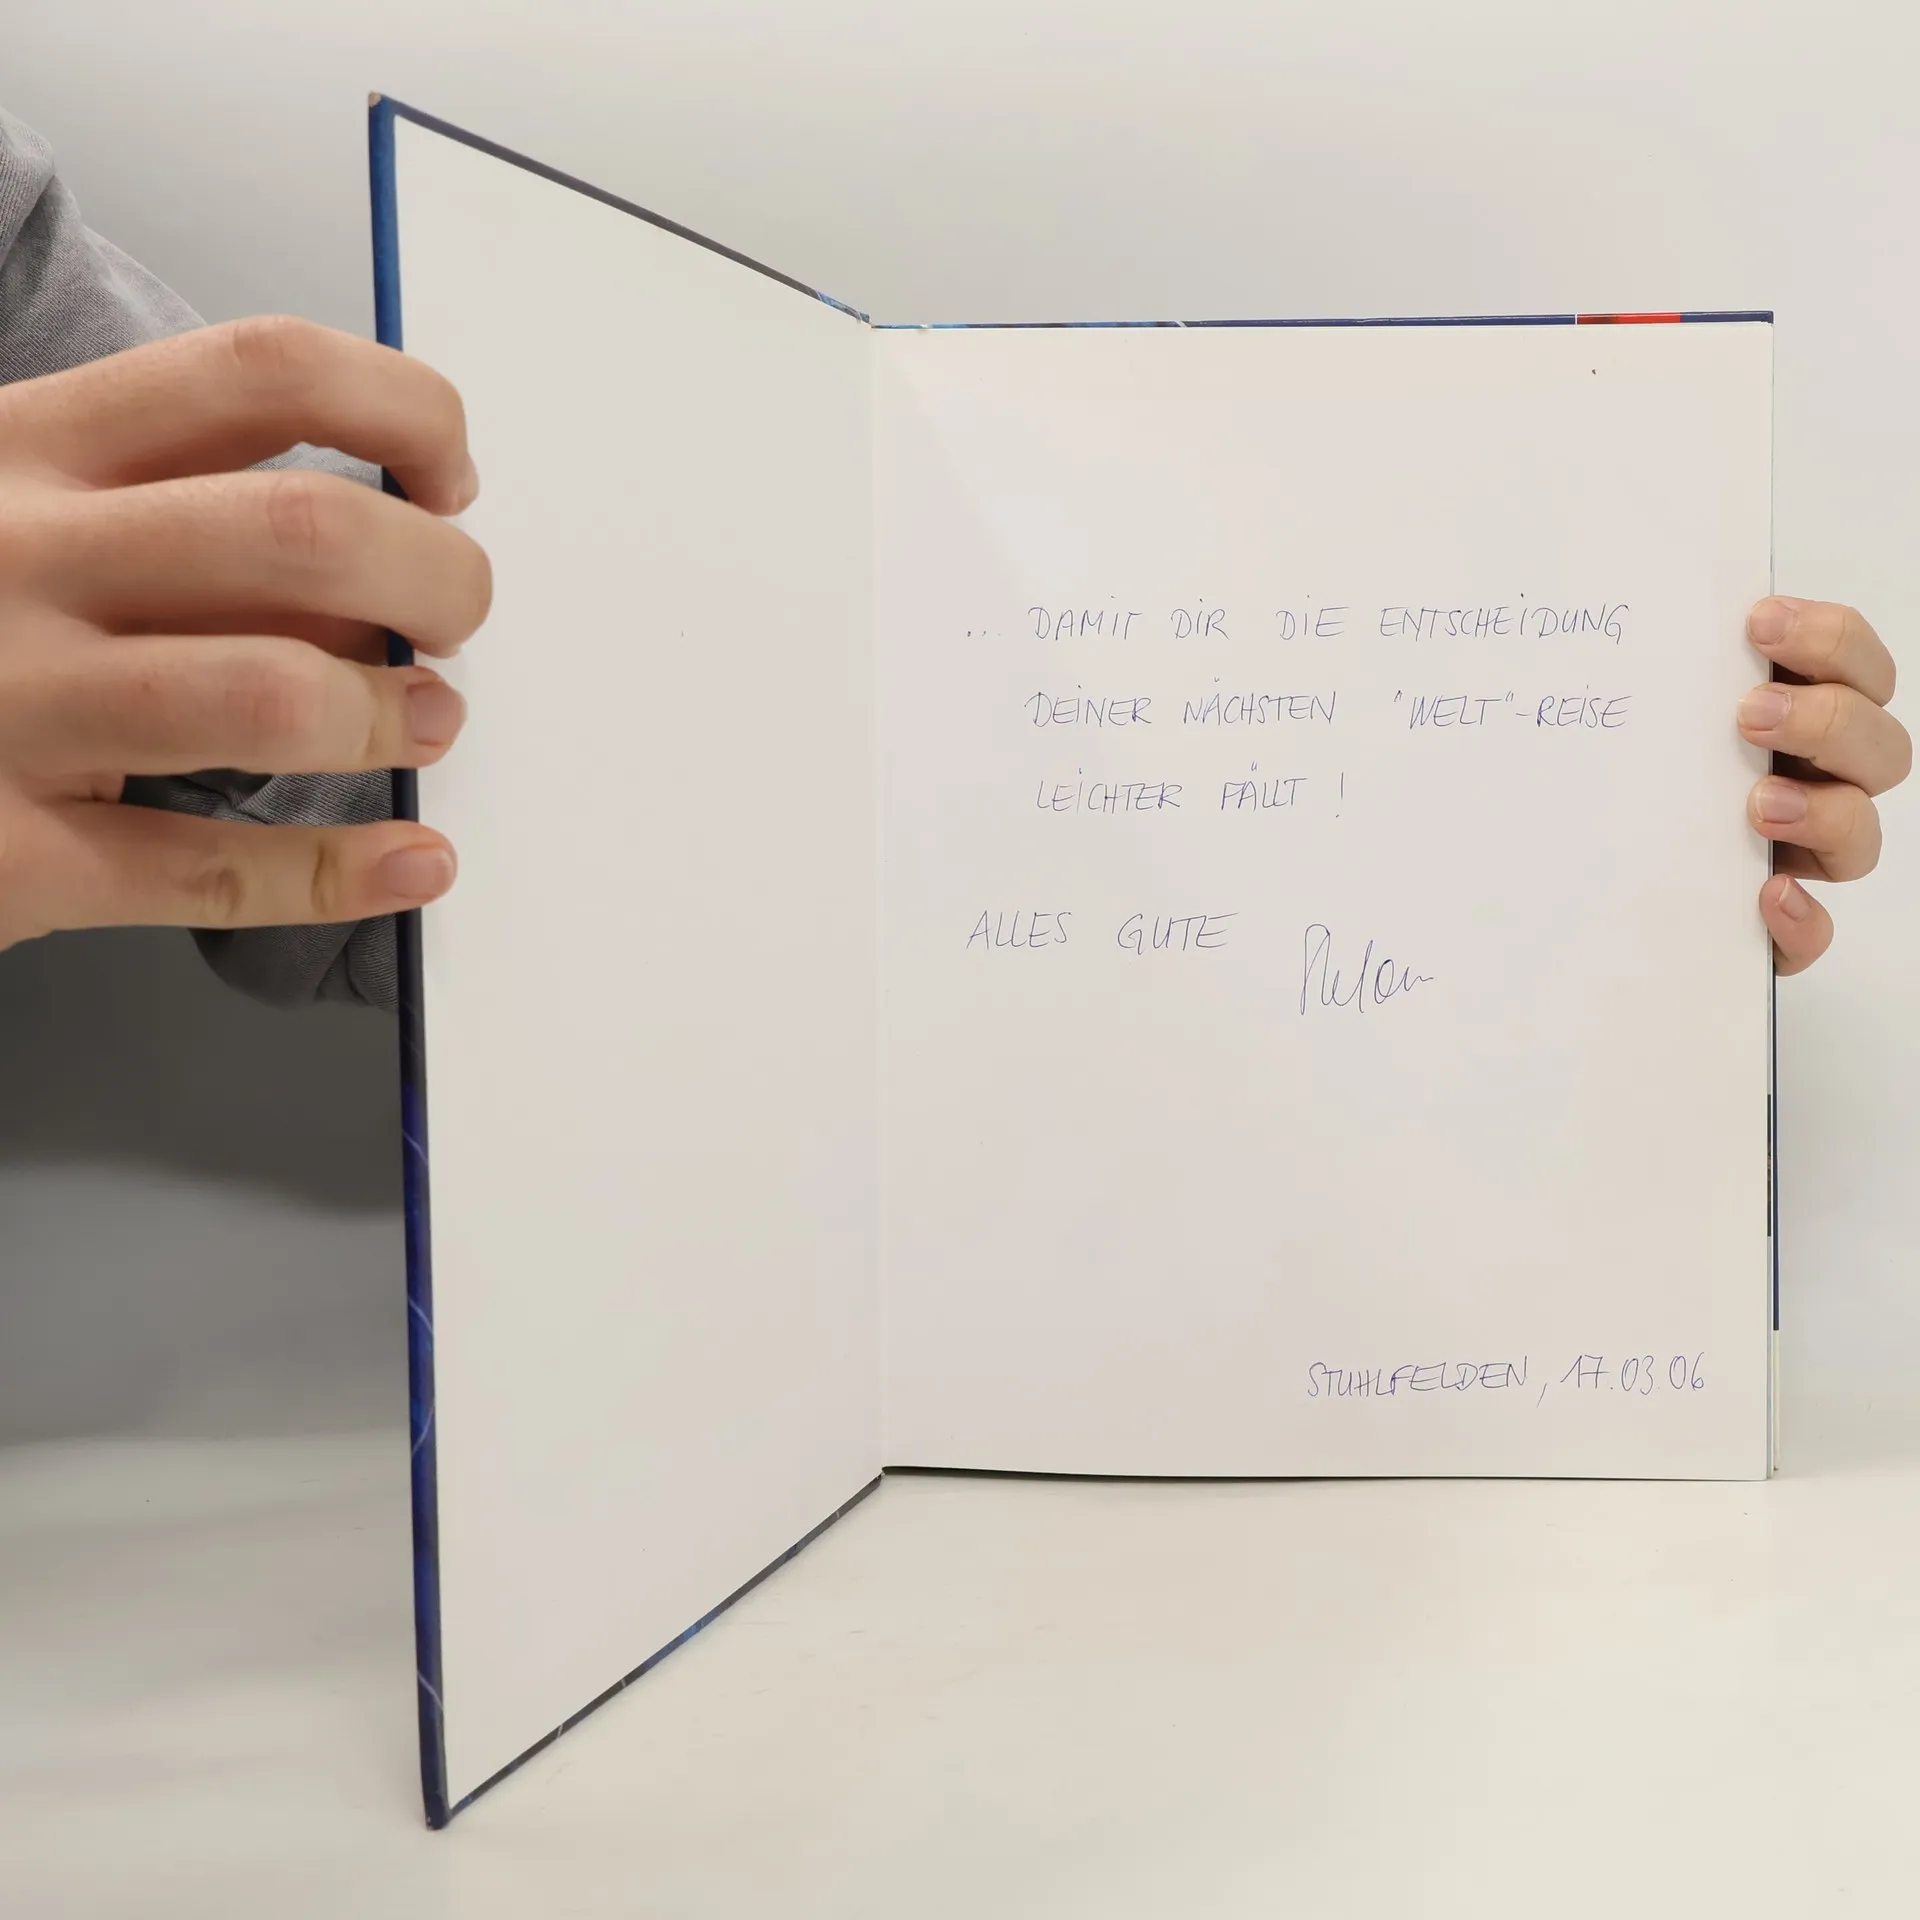 ... DAMIT DIR DIE ENTSCHEIDUNG
DEINER NÄCHSTEN "WELT"-REISE
LEICHTER FÄLLT !
ALLES GUTE
STUHLFELDEN, 17.03.06